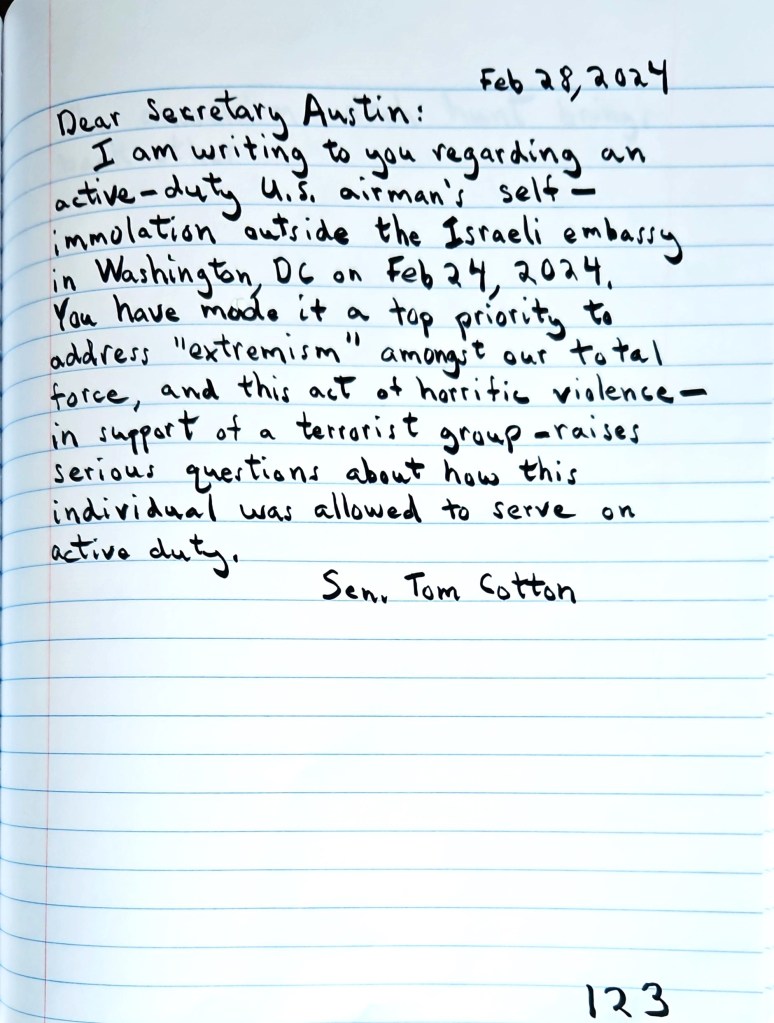 Feb 28, 2024
Dear Secretary Austin:
I am writing to you regarding an
active-duty U.S. airman's self-
immolation outside the Israeli embassy
in Washington, DC on Feb 24, 2024.
You have made it a top priority to
address "extremism" amongst our total
force, and this act of horrific violence-
in support of a terrorist group-raises
serious questions about how this
individual was allowed to serve on
active duty.
Sen. Tom Cotton
123